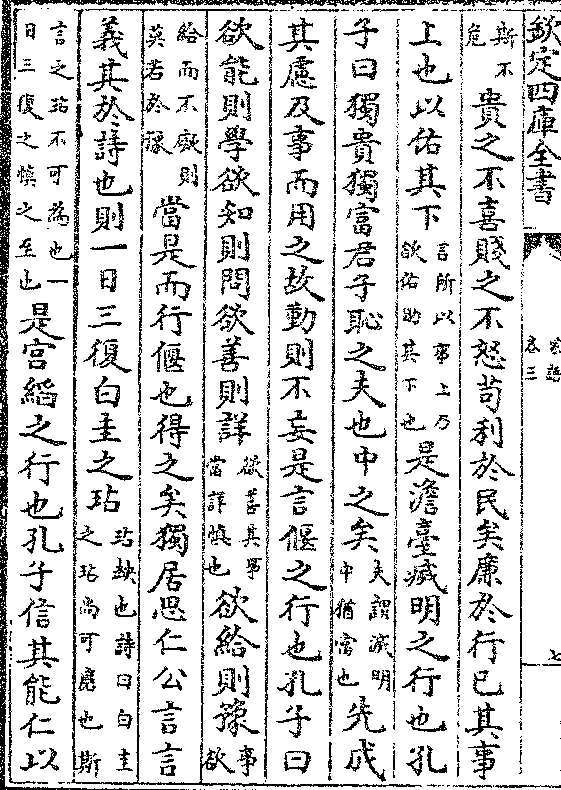 欽定四庫全書
家語
卷三
七
斯不
危
貴之不喜賤之不怒苟利於民矣廉於行已其事
上也以佑其下
言所以事上乃
欲佑助其下也
是澹臺滅明之行也孔
子曰獨貴獨富君子恥之夫也中之矣
夫謂滅明
中猶當也
先成
其慮及事而用之故動則不妄是言偃之行也孔子曰
欲能則學欲知則問欲善則詳
欲善其事
當詳慎也
欲給則豫
事
欲
給而不則
莫若於豫
當是而行偃也得之矣獨居思仁公言言
義其於詩也則一日三復白圭之玷
玷缺也詩曰白圭
之玷尚可磨也斯
言之玷不可為也一
日三復之慎之至也
是宫縚之行也孔子信其能仁以